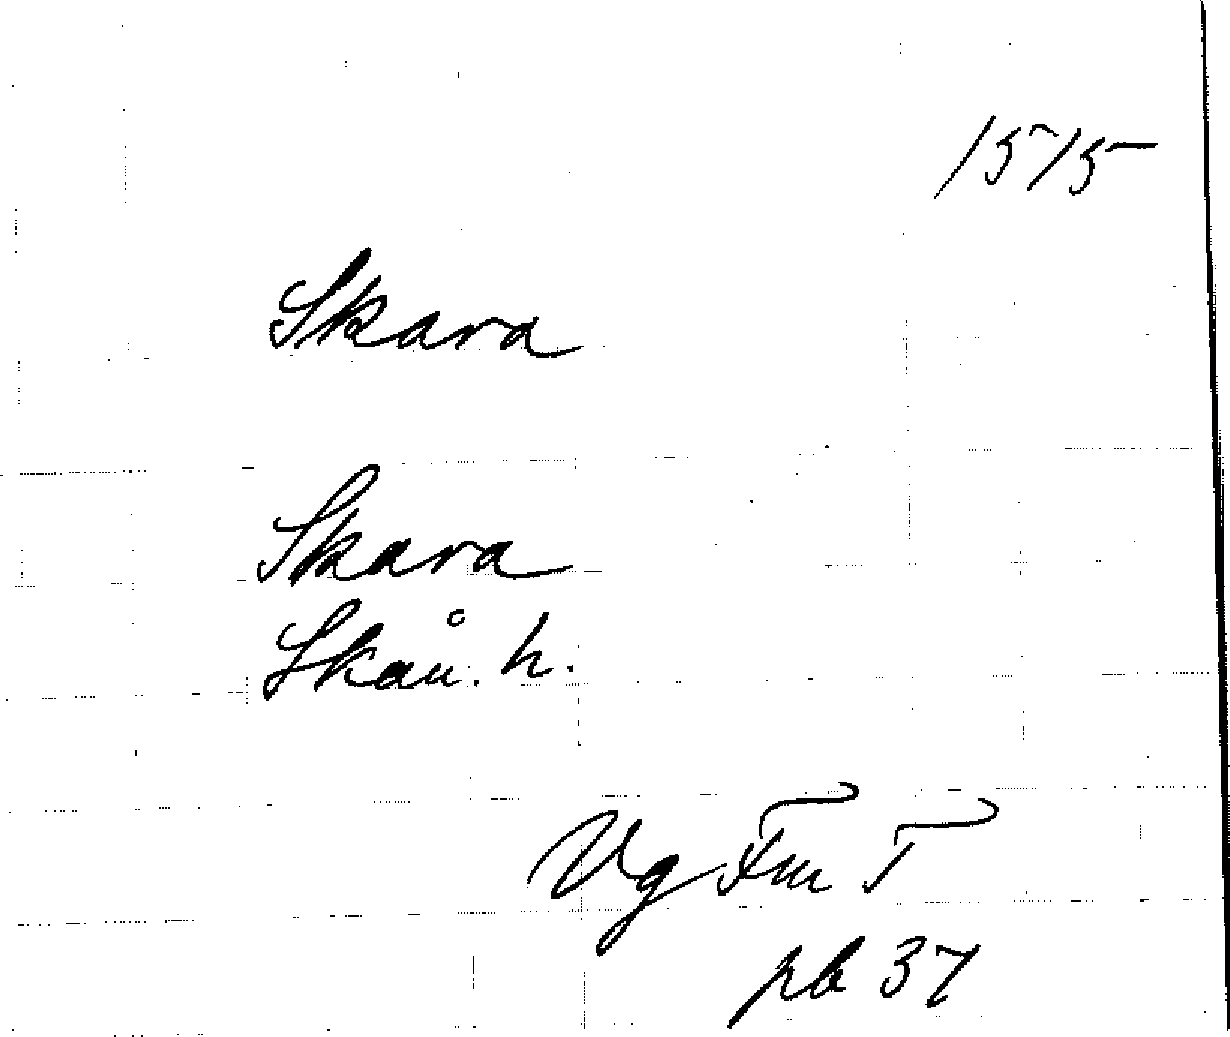 1515
Skara
Skara
Skån. h.
Vg Fm T
pb 37